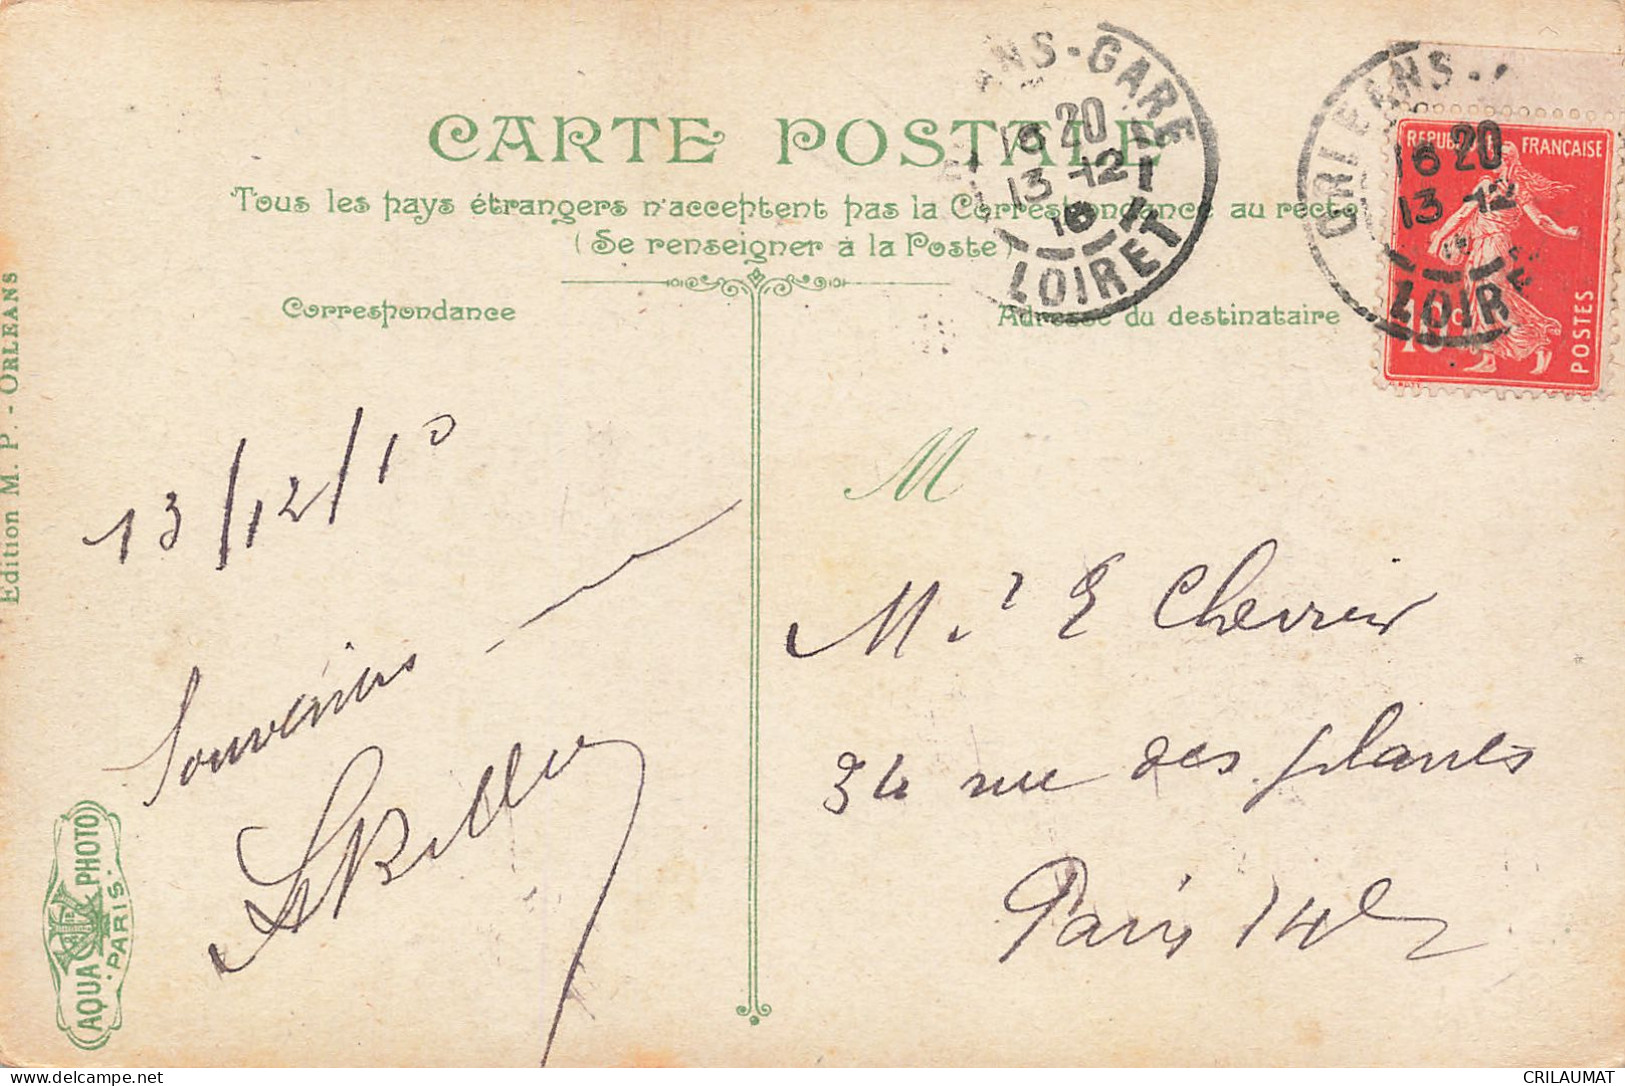 CARTE POSTALE
Tous les pays étrangers n'acceptent pas la Correspondance au recto
(Se renseigner à la Poste)
Correspondance
Adresse du destinataire
ANS-GARE
16 20
13-12
10
LOIRET
ORLEANS-
16 20
13-12
LOIRE
REPUBLIQUE FRANÇAISE
10c
POSTES
Edition M. P. - ORLEANS
13/12/10
Souvenirs
M
M.r E Chevrier
34 rue des plantes
Paris 14e
AQUA PHOTO
PARIS
CRILAUMAT